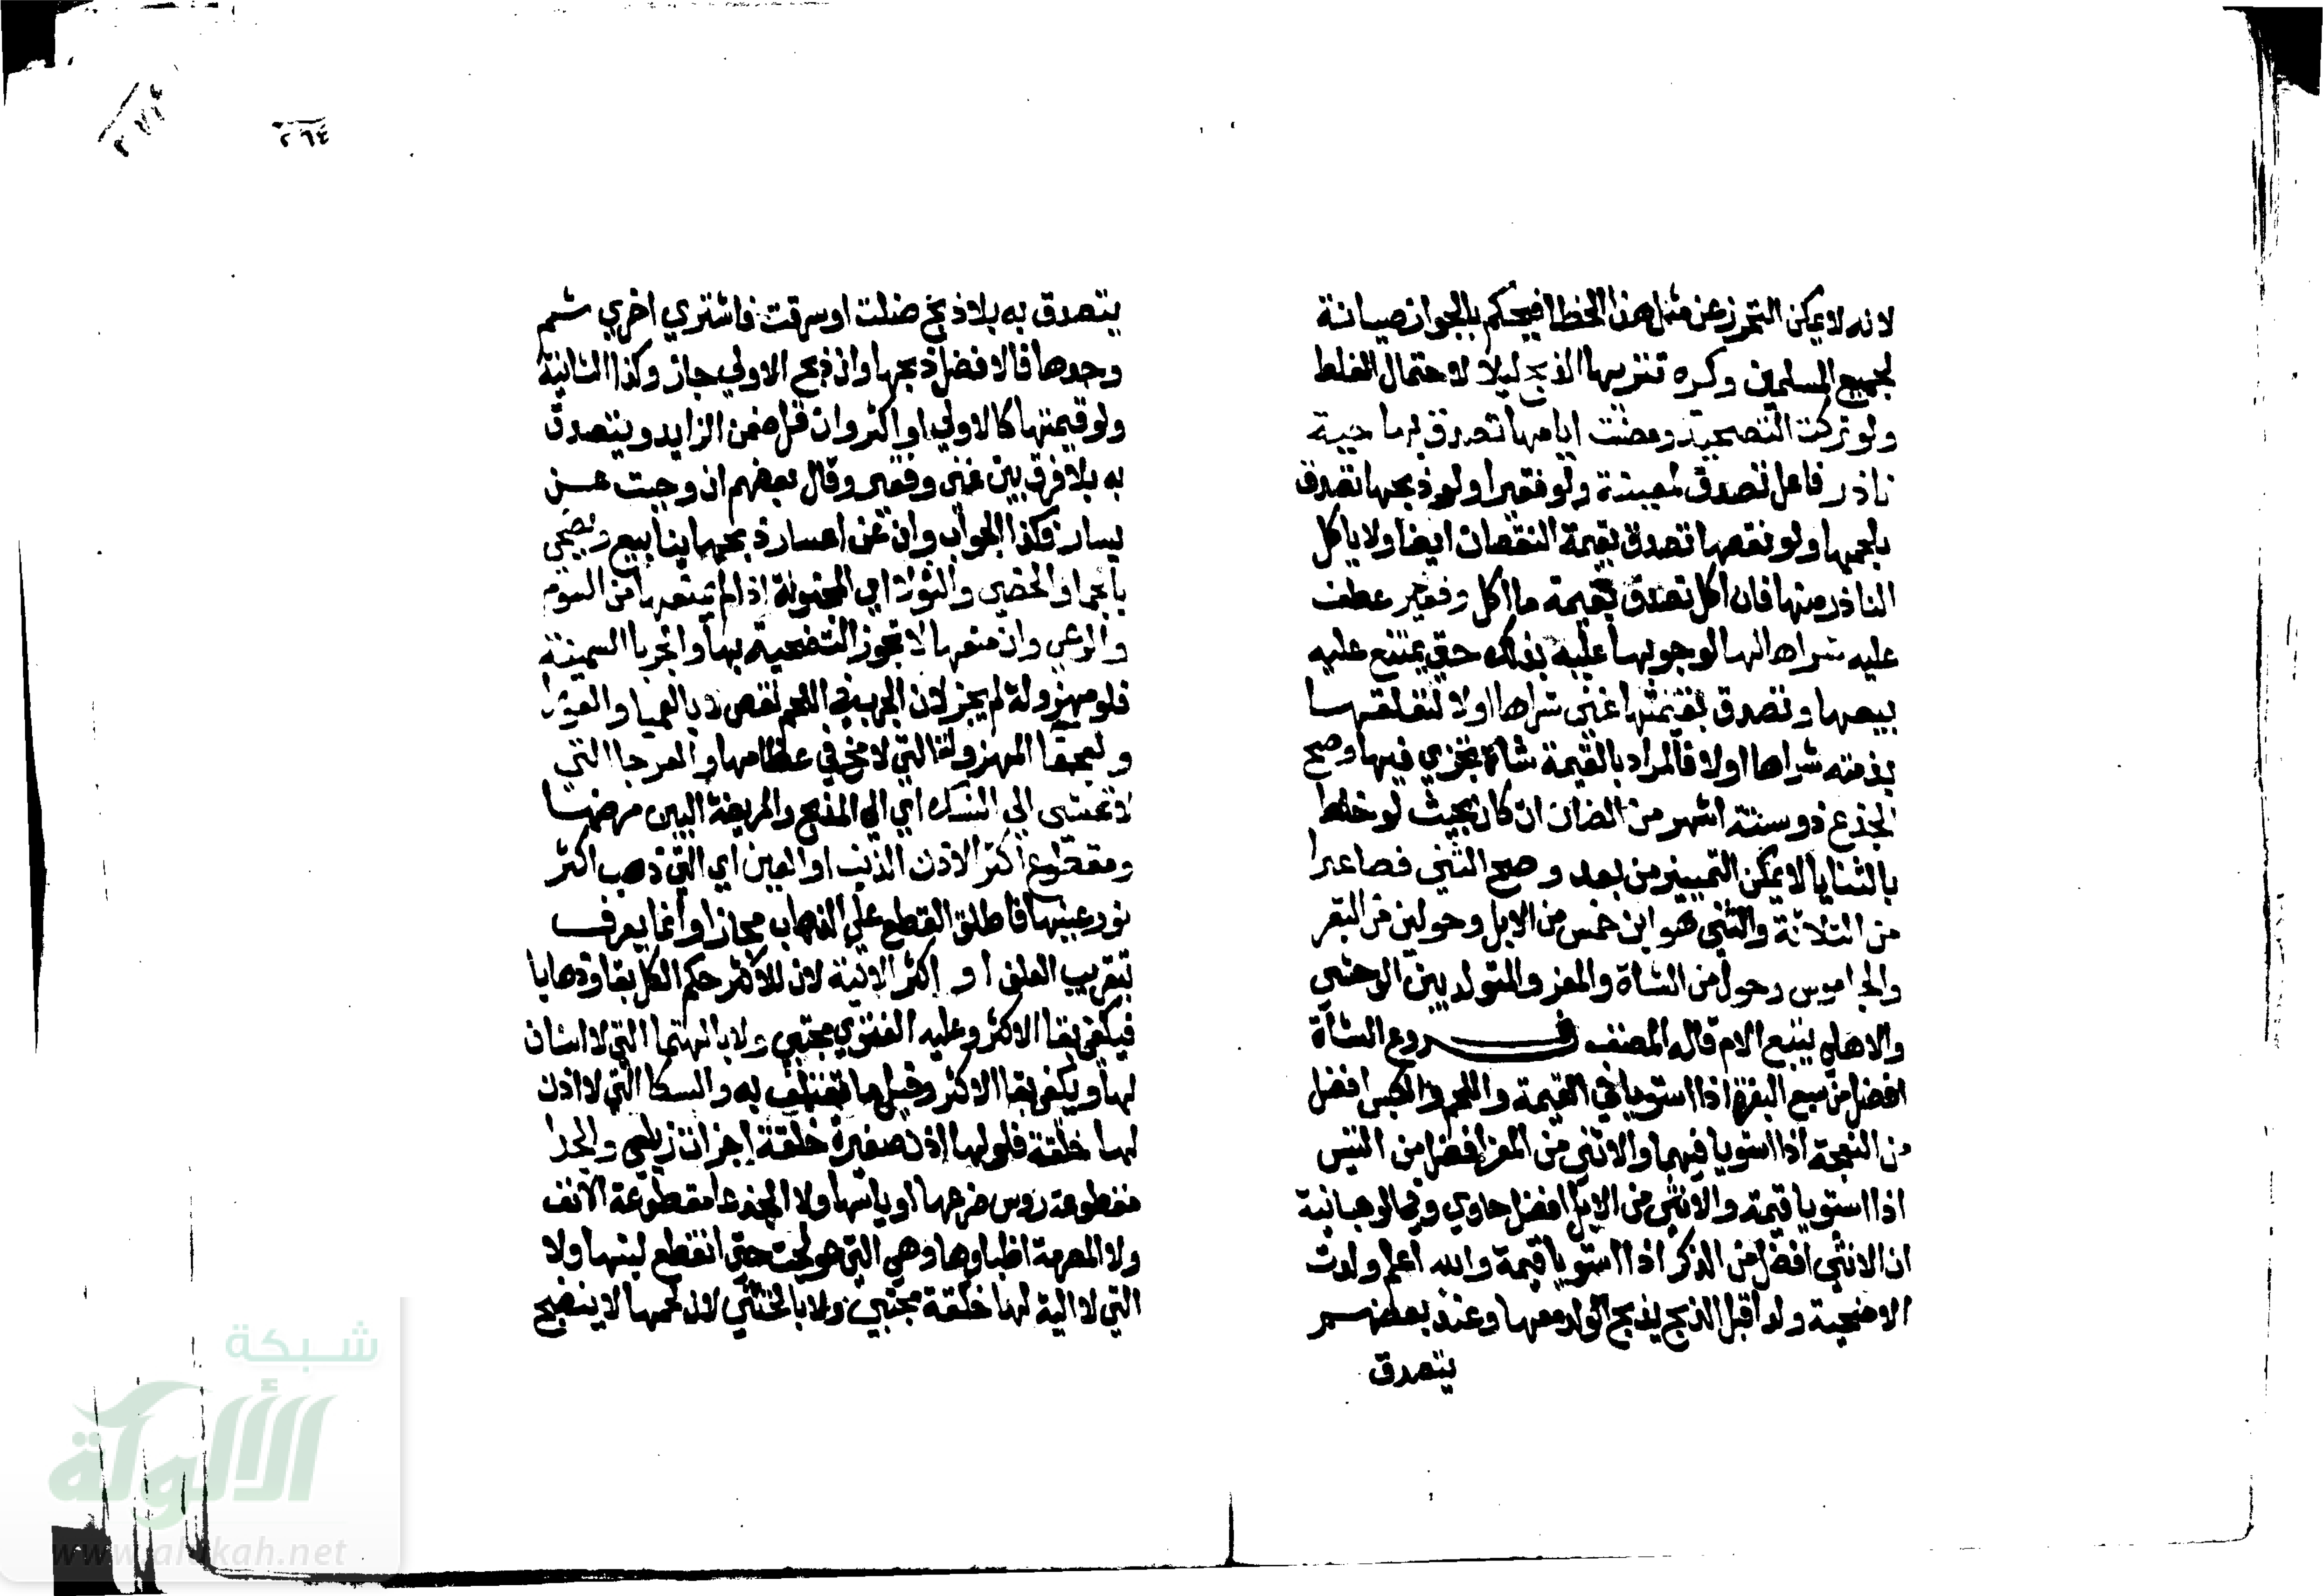 ٢٦٤
لانه لا يمكن التحرز عن مثل هذا الخطا فيحكم بالجواز صيانة
لجميع المسلمين وكره تنزيها الذبح ليلا لاحتمال الغلط
ولو تركت التضحية ومضت ايامها تصدق بها حية
ناذر فاعل تصدق لمعينة ولو فقيرا ولو ذبحها تصدق
بلحمها ولو نقصها تصدق بقيمة النقصان ايضا ولا ياكل
الناذر منها فان اكل تصدق بقيمة ما اكل وفقير عطف
عليه شراها لها لوجوبها عليه بذلك حتي يمتنع عليه
بيعها وتصدق بقيمتها غني شراها اولا لتعلقها
بذمته شراها اولا فالمراد بالقيمة شاة تجزي فيها وصح
الجذع ذو ستة اشهر من الضان ان كان بحيث لو خلط
بالثنايا لا يمكن التمييز من بعد وصح الثني فصاعدا
من الثلاثة والثني هو ابن خمس من الابل وحولين من البقر
والجاموس وحول من الشاة والمعز والمتولد بين الوحشي
والاهلي يتبع الام قاله المصنف فروع الشاة
افضل من سبع البقرة اذا استويا في القيمة واللحم والكبش افضل
من النعجة اذا استويا فيهما والانثي من المعز افضل من التيس
اذا استويا قيمة والانثي من الابل افضل حاوي وفي الوهبانية
ان الانثي افضل من الذكر اذا استويا قيمة والله اعلم ولدت
الاضحية ولدا قبل الذبح يذبح الولد معها وعند بعضهم
يتصدق
يتصدق به بلا ذبح ضلت او سرقت فاشتري اخري ثم
وجدها فالافضل ذبحها وان ذبح الاولي جاز وكذا الثانية
ولو قيمتها كالاولي او اكثر وان قل ضمن الزايد ويتصدق
به بلا فرق بين غني وفقير وقال بعضهم ان وجبت عن
يسار فكذا الجواب وان عن اعسار ذبحهما ينابيع ويضحي
بالجما والخصي والثولا اي المجنونة اذا لم يمنعها من السوم
والرعي وان منعها لا تجوز التضحية بها والجربا السمينة
فلو مهزولة لم يجز لان الجرب في اللحم نقص لا بالعميا والعورا
والعجفا المهزولة التي لا مخ في عظامها والعرجا التي
لا تمشي الي المنسك اي الي المذبح والمريضة البين مرضها
ومقطوع اكثر الاذن الذنب او العين اي التي ذهب اكثر
نور عينها فاطلق القطع علي الذهاب مجازا وانما يعرف
بتقريب العلف او اكثر الالية لان للاكثر حكم الكل بقا وذهابا
فيكفي بقا الاكثر وعليه الفتوي مجتبي ولا بالهتما التي لا اسنان
لها ويكفي بقا الاكثر وقيل ما تعتلف به والسكا التي لا اذن
لها خلقة فلو لها اذن صغيرة خلقة اجزات زيلعي والجذا
مقطوعة روس ضرعها او يابستها ولا الجدعا مقطوعة الانف
ولا المصرمة اطباوها وهي التي عولجت حتي انقطع لبنها ولا
التي لا الية لها خلقة مجتبي ولا بالخنثي لان لحمها لا ينضج
شبكة
الألوكة
www.alukah.net